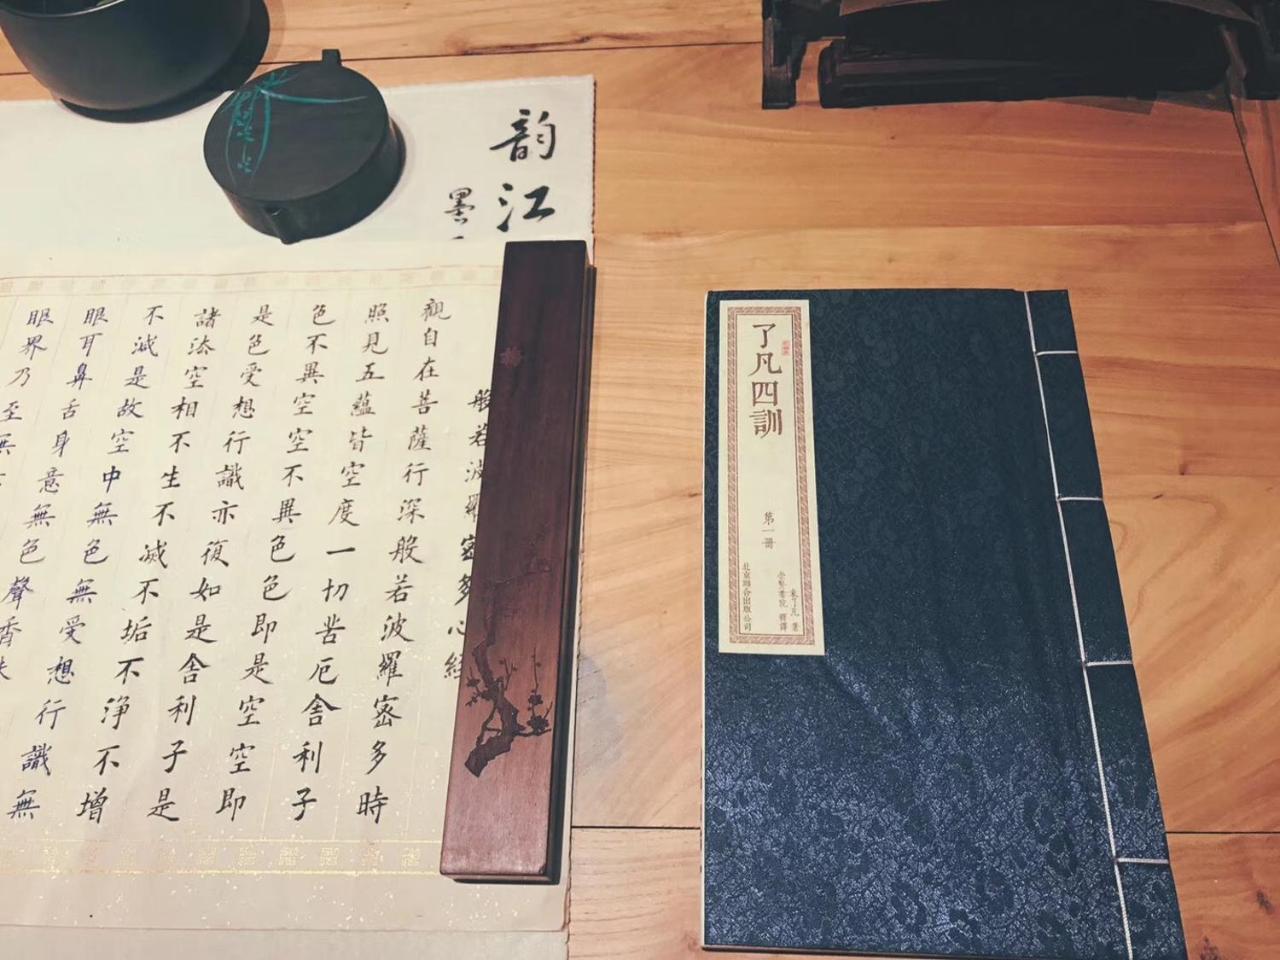 韵江
墨
般若波羅密多心經
觀自在菩薩行深般若波羅密多時
照見五蘊皆空度一切苦厄舍利子
色不異空空不異色色即是空空即
是色受想行識亦復如是舍利子是
諸法空相不生不滅不垢不淨不增
不減是故空中無色無受想行識無
眼耳鼻舌身意無色聲香味
眼界乃至無
了凡四訓
第一冊
袁了凡 著
崇賢書院 釋譯
北京聯合出版公司